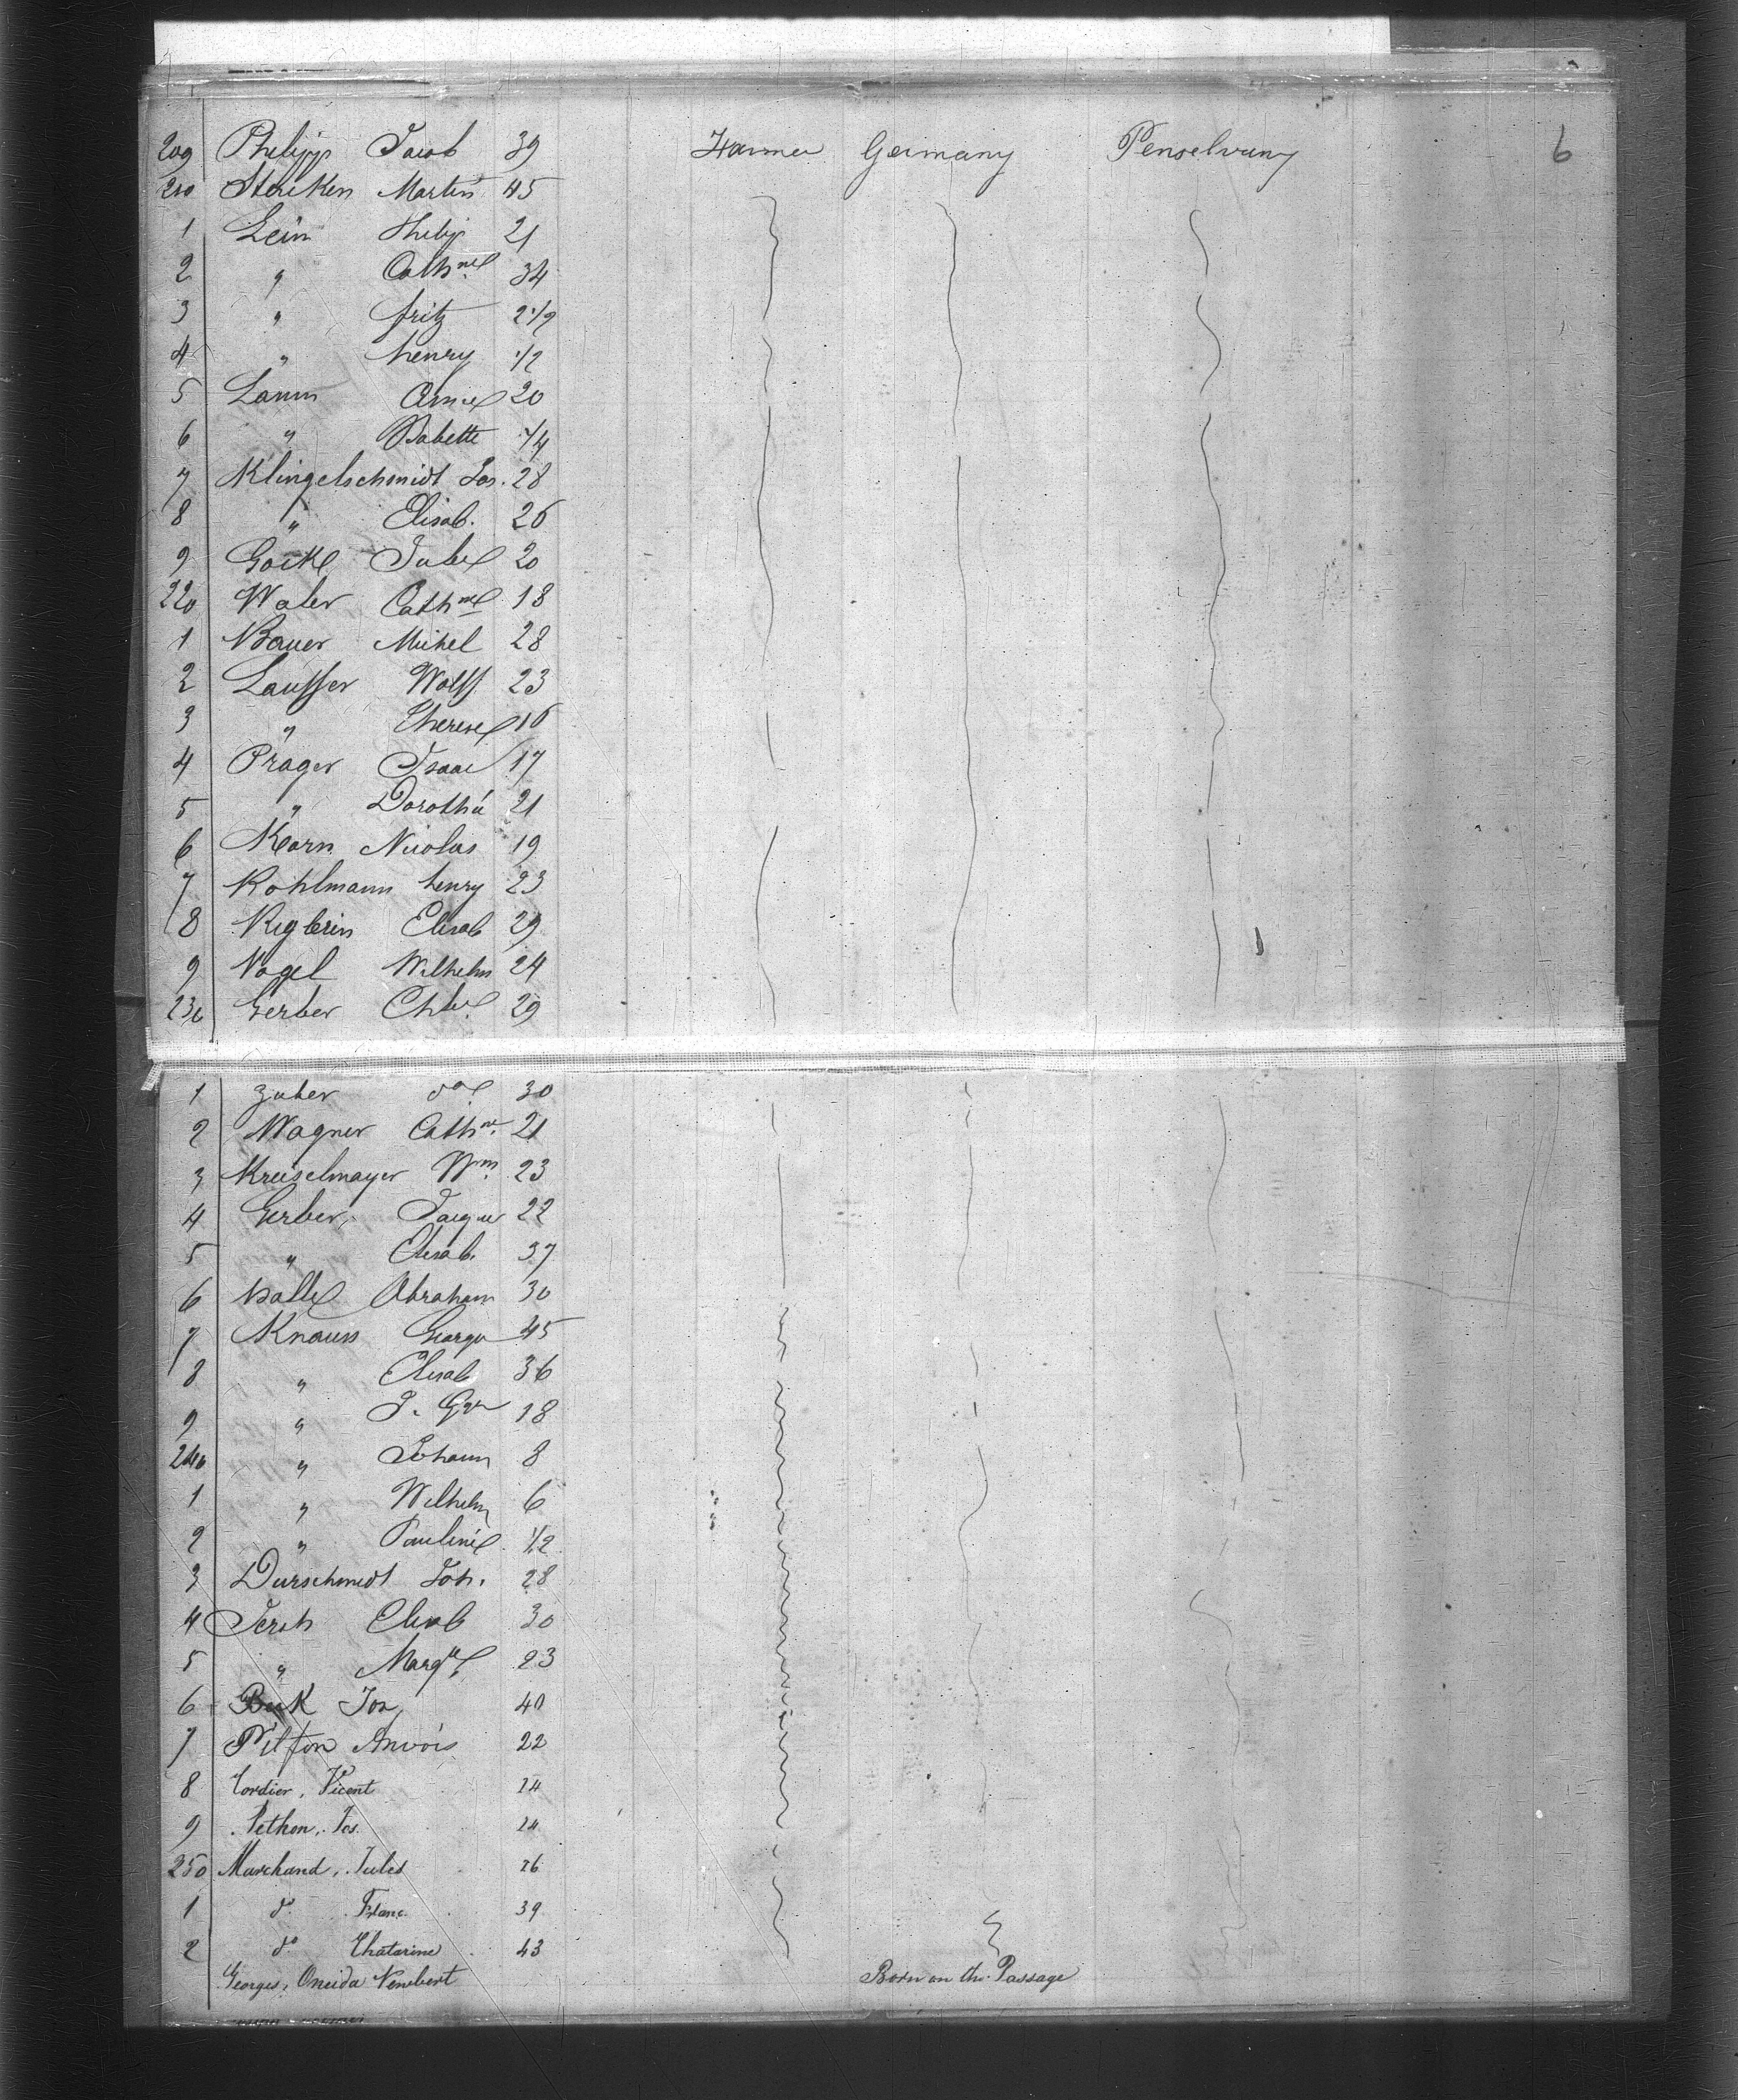 209 Philipp Jacob 39 Farmer Germany Penselvany 6
210 Sterken Martin 45
1 Lein Philip 21
2 " Cathne 34
3 " fritz 2 1/2
4 " henry 1/2
5 Lamm 20
6 " Babette 1/4
7 Klingelschmidt Jos. 28
8 " Elisab. 26
9 Gockl 20
220 Waler Cathne 18
1 Bauer Michel 28
2 Lauffer Wolff 23
3 " Therese 16
4 Prager Isaac 17
5 " Dorothé 21
6 Korn Nicolas 19
7 Kohlmann henry 23
8 Kiglerin Elisab 29
9 Vogel Wilhelm 24
230 Gerber Chte. 29
1 Zuber do 30
2 Wagner Cathne. 21
3 Kreiselmayer Wm. 23
4 Gerber, Jacque 22
5 " Elisab. 37
6 Balle Abraham 30
7 Knauss George 45
8 " Elisab 36
9 " J. Gge 18
240 " Johann 8
1 " Wilhelm 6
2 " Pauline 1/2
3 Durschmidt Joh. 28
4 Jersh Elisab 30
5 " Margte 23
6 Buk Jos, 40
7 Pilfon 22
8 Cordier, Vicent 24
9 Pethon, Jos. 24
250 Marchand, Jules 26
1 do Franc. 39
2 do Chatarine 43
Georges, Oneida Nenebert Born on the Passage